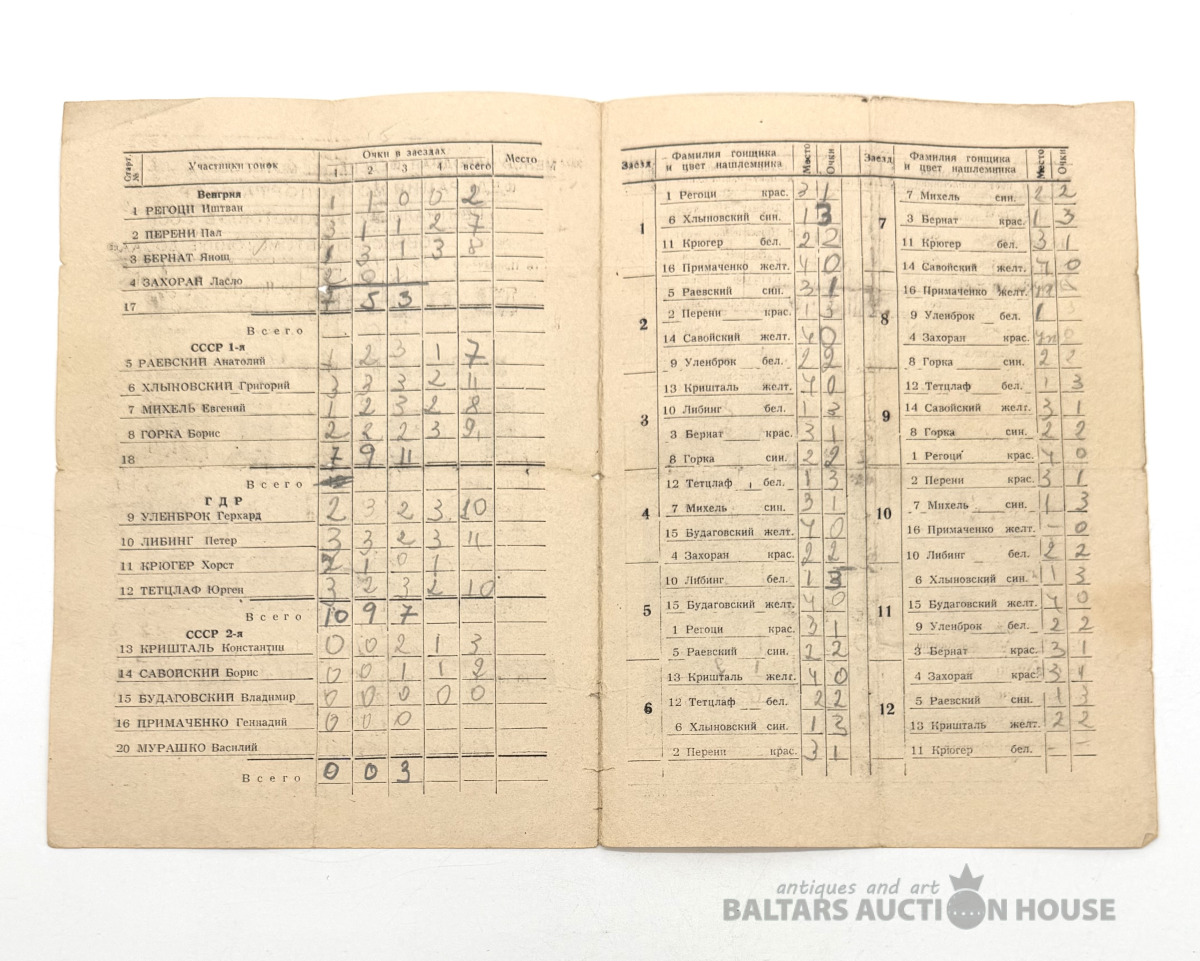 Старт. № Участники гонок Очки в заездах Место
1 2 3 4 всего
Венгрия
1 РЕГОЦИ Иштван 1 1 0 0 2
2 ПЕРЕНИ Пал 3 1 1 2 7
3 БЕРНАТ Янош 1 3 1 3 8
4 ЗАХОРАН Ласло 2 0 1
17 7 5 3
Всего
СССР 1-я
5 РАЕВСКИЙ Анатолий 1 2 3 1 7
6 ХЛЫНОВСКИЙ Григорий 3 3 3 2 11
7 МИХЕЛЬ Евгений 1 2 3 2 8
8 ГОРКА Борис 2 2 2 3 9
18 7 9 11
Всего
ГДР
9 УЛЕНБРОК Герхард 2 3 2 3 10
10 ЛИБИНГ Петер 3 3 2 3 11
11 КРЮГЕР Хорст 2 1 0 1
12 ТЕТЦЛАФ Юрген 3 2 3 2 10
Всего 10 9 7
СССР 2-я
13 КРИШТАЛЬ Константин 0 0 2 1 3
14 САВОЙСКИЙ Борис 0 0 1 1 2
15 БУДАГОВСКИЙ Владимир 0 0 0 0 0
16 ПРИМАЧЕНКО Геннадий 0 0 0
20 МУРАШКО Василий
Всего 0 0 3
Заезд Фамилия гонщика и цвет нашлемника Место Очки
1
1 Регоци крас. 3 1
6 Хлыновский син. 1 3
11 Крюгер бел. 2 2
16 Примаченко желт. 4 0
2
5 Раевский син. 3 1
2 Перени крас. 1 3
14 Савойский желт. 4 0
9 Уленброк бел. 2 2
3
13 Кришталь желт. 4 0
10 Либинг бел. 1 3
3 Бернат крас. 3 1
8 Горка син. 2 2
4
12 Тетцлаф бел. 1 3
7 Михель син. 3 1
15 Будаговский желт. 4 0
4 Захоран крас. 2 2
5
10 Либинг бел. 1 3
15 Будаговский желт. 4 0
1 Регоци крас. 3 1
5 Раевский син. 2 2
6
13 Кришталь желт. 4 0
12 Тетцлаф бел. 2 2
6 Хлыновский син. 1 3
2 Перени крас. 3 1
Заезд Фамилия гонщика и цвет нашлемника Место Очки
7
7 Михель син. 2 2
3 Бернат крас. 1 3
11 Крюгер бел. 3 1
14 Савойский желт. 4 0
8
16 Примаченко желт.
9 Уленброк бел. 1 3
4 Захоран крас. 0
8 Горка син. 2 2
9
12 Тетцлаф бел. 1 3
14 Савойский желт. 3 1
8 Горка син. 2 2
1 Регоци крас. 4 0
10
2 Перени крас. 3 1
7 Михель син. 1 3
16 Примаченко желт. - 0
10 Либинг бел. 2 2
11
6 Хлыновский син. 1 3
15 Будаговский желт. 4 0
9 Уленброк бел. 2 2
3 Бернат крас. 3 1
12
4 Захоран крас. 3 1
5 Раевский син. 1 3
13 Кришталь желт. 2 2
11 Крюгер бел. - -
antiques and art
BALTARS AUCTION HOUSE